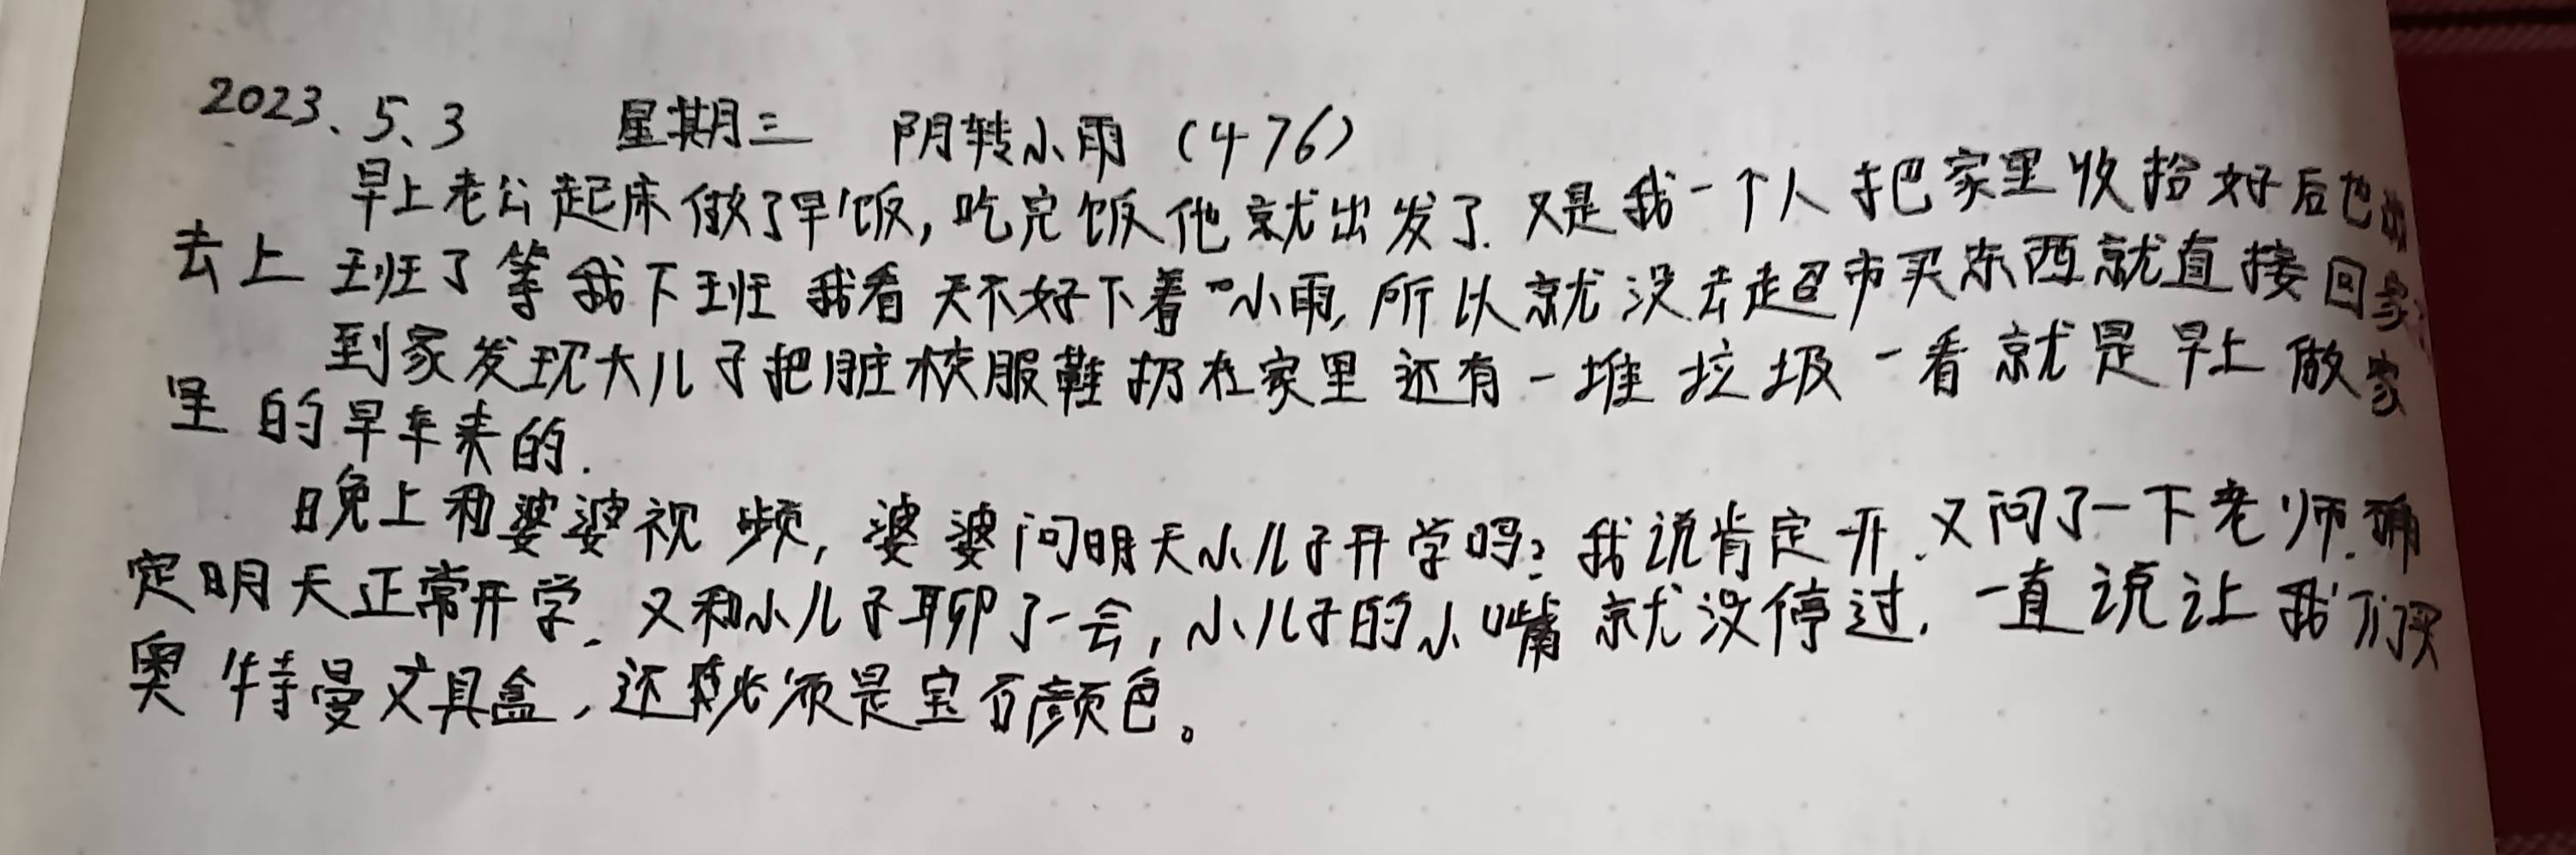 2023、5、3 星期三 阴转小雨 (476)
早上老公起床做了早饭,吃完饭他就出发了.又是我一个人把家里收拾好后也
去上班了等我下班我看天不好下着小雨,所以就没去超市买东西就直接回家
到家发现大儿子把脏校服鞋扔在家里还有一堆垃圾一看就是早上做家
里的早车来的.
晚上和婆婆视频,婆婆问明天小儿子开学吗?我说肯定开.又问了一下老师.确
定明天正常开学.又和小儿子聊了一会,小儿子的小嘴就没停过.一直说让我们买
奥特曼文具盒,还必须是宝石颜色。